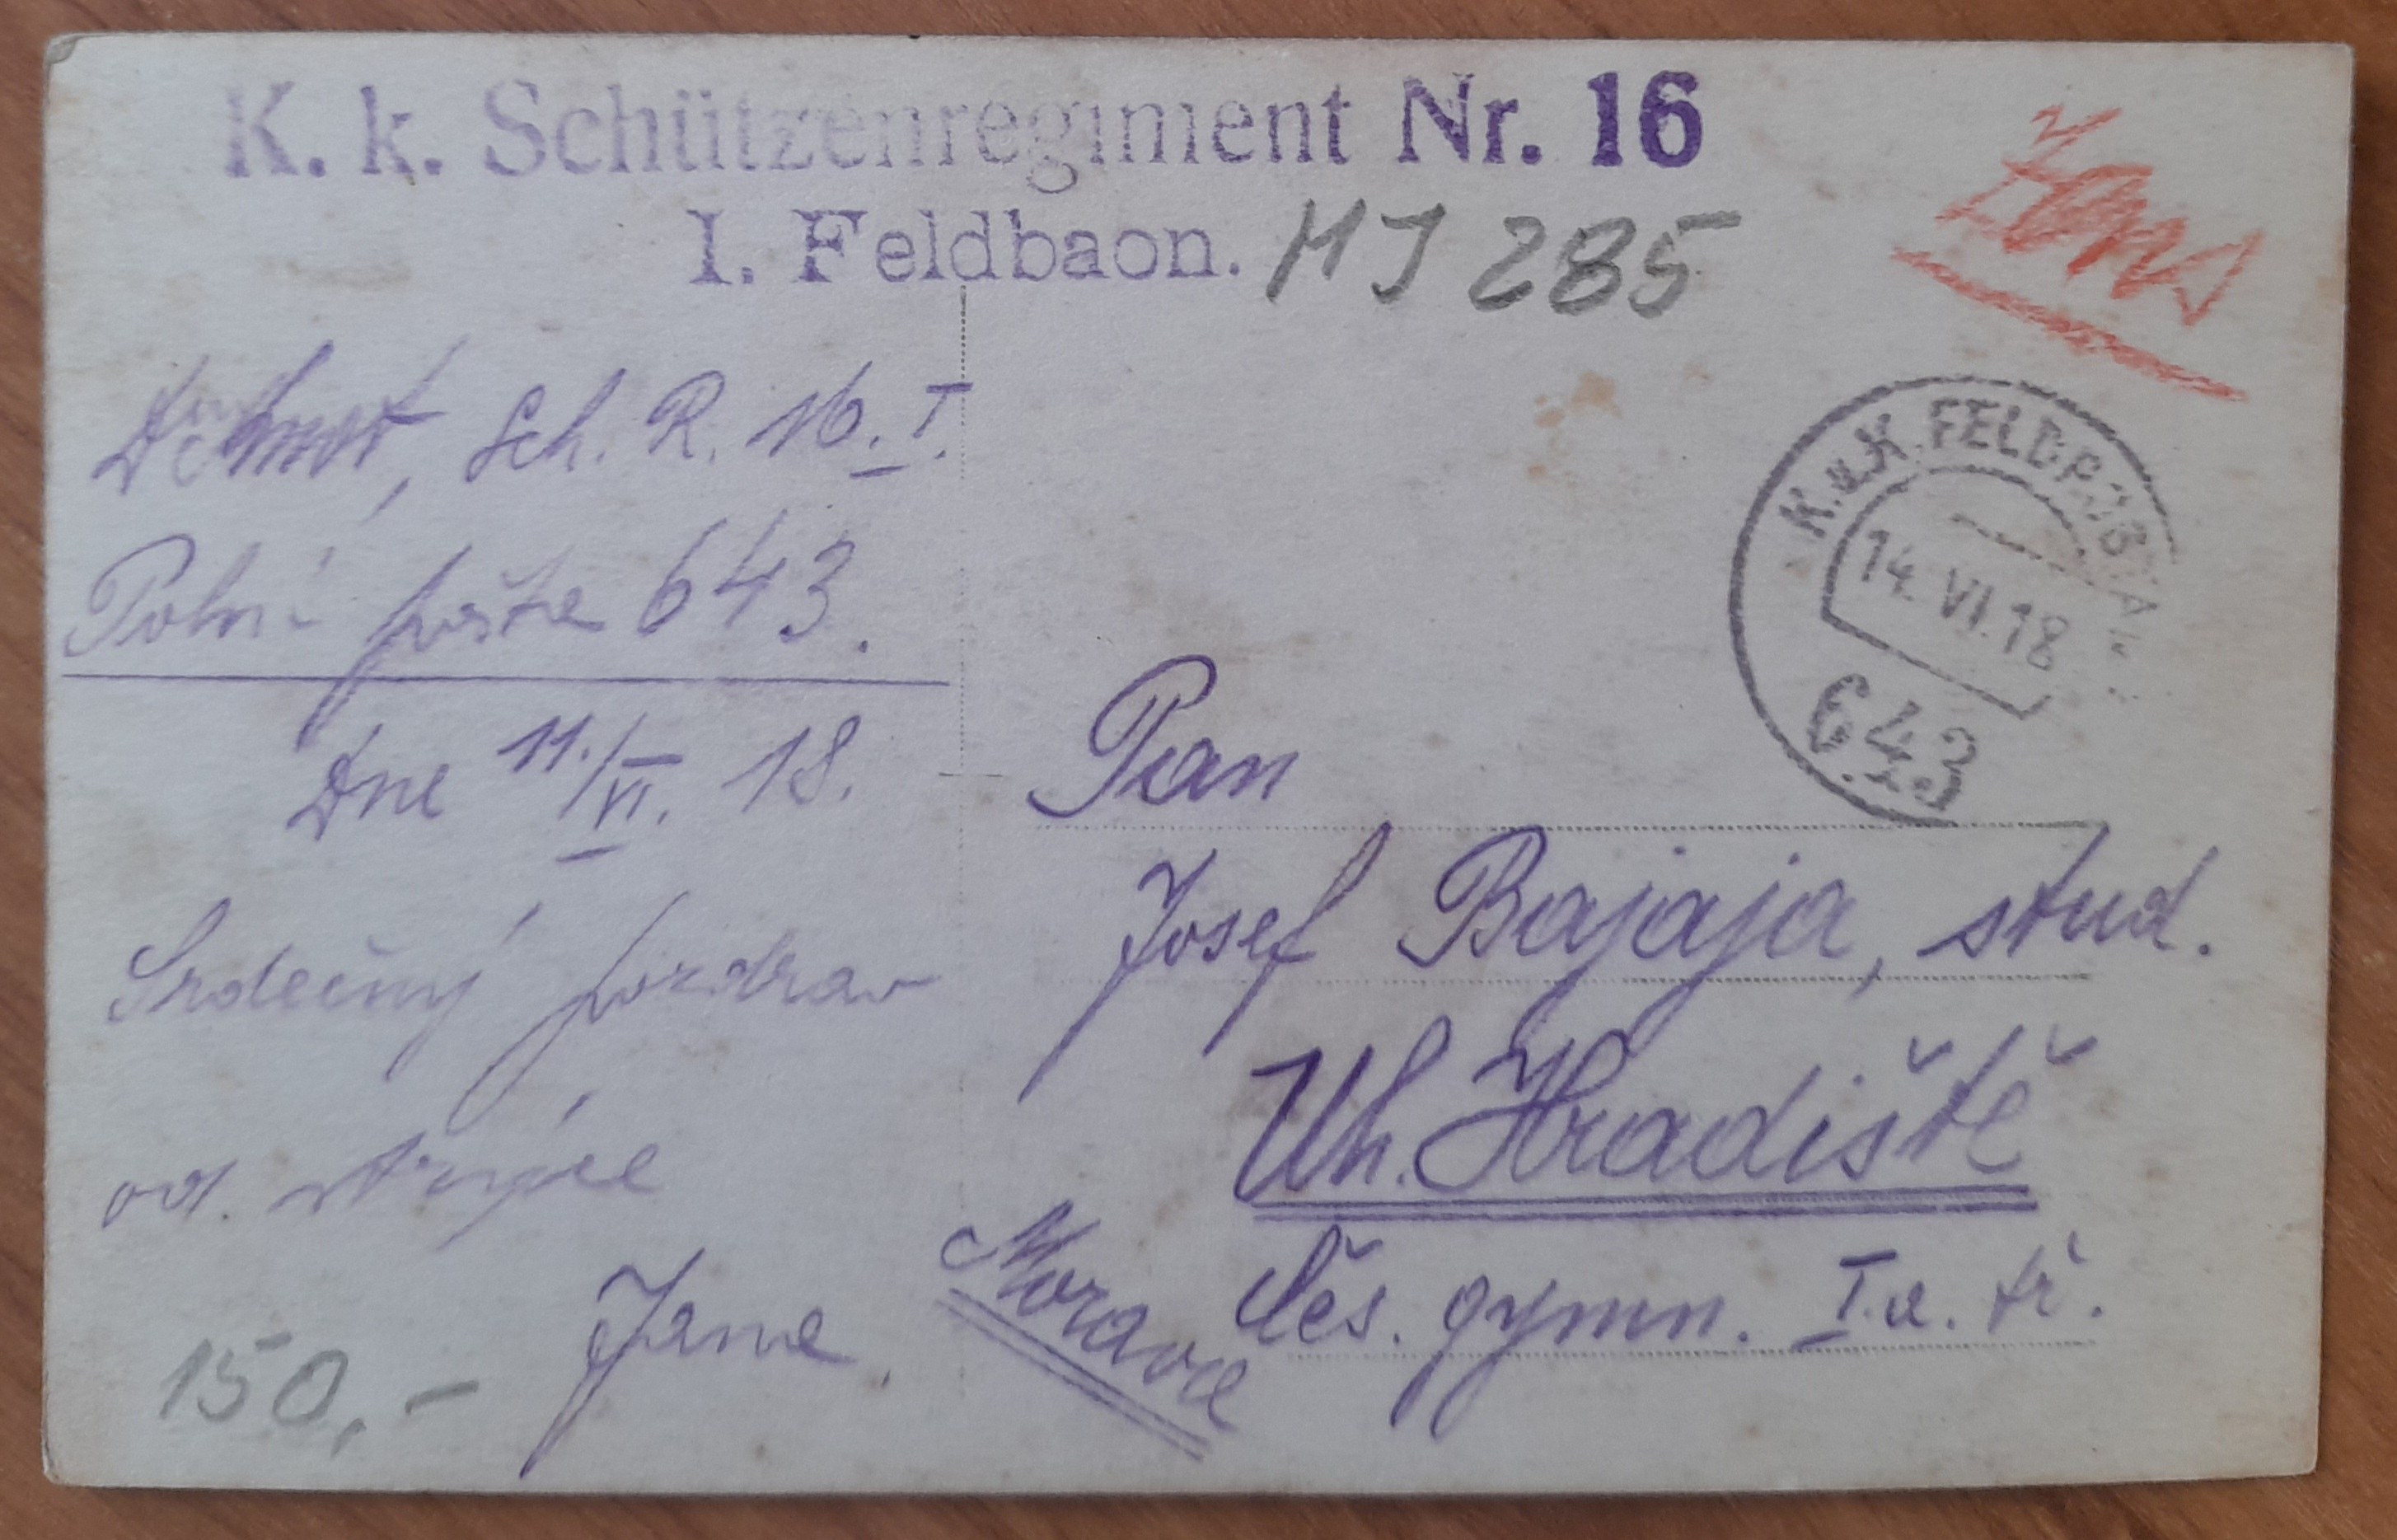 K. k. Schützenregiment Nr. 16
1. Feldbaon.
HJ 285
Sch. R. 16. I.
Polní pošta 643.
Dne 11./VI. 18.
Srdečný pozdrav
od strýce
Jana.
150,-
K.u.K. FELDPOSTAMT
14. VI. 18
643
Pan
Josef Bajaja, stud.
Uh. Hradiště
Čes. gymn. I.a. tř.
Morava